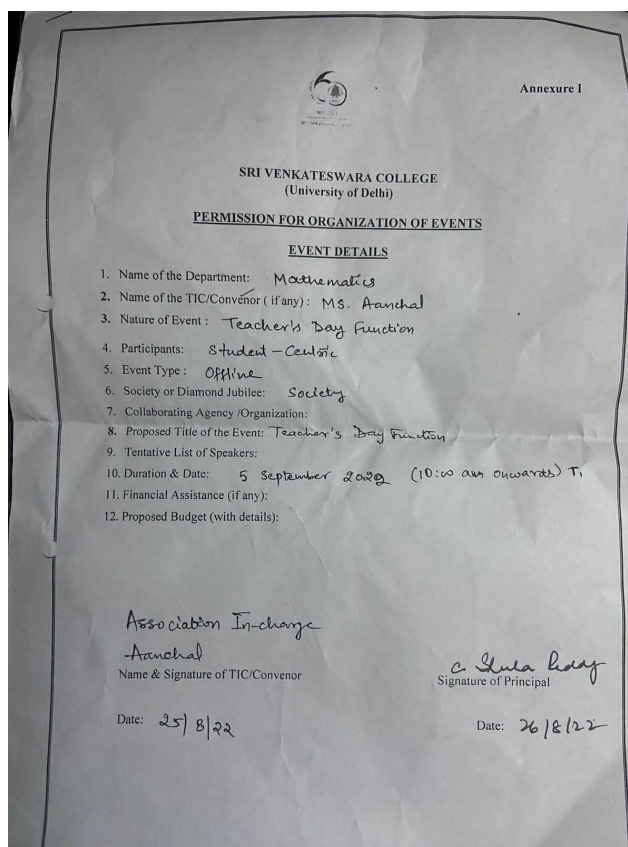 60
Annexure I
SRI VENKATESWARA COLLEGE
(University of Delhi)
PERMISSION FOR ORGANIZATION OF EVENTS
EVENT DETAILS
1. Name of the Department: Mathematics
2. Name of the TIC/Convenor ( if any) : MS. Aanchal
3. Nature of Event : Teacher's Day Function
4. Participants: Student - Centric
5. Event Type : Offline
6. Society or Diamond Jubilee: Society
7. Collaborating Agency /Organization:
8. Proposed Title of the Event: Teacher's Day Function
9. Tentative List of Speakers:
10. Duration & Date: 5 September 2022 (10:00 am onwards) T1
11. Financial Assistance (if any):
12. Proposed Budget (with details):
Association In-charge
Aanchal
Name & Signature of TIC/Convenor
Reddy
Signature of Principal
Date: 25/8/22
Date: 26/8/22